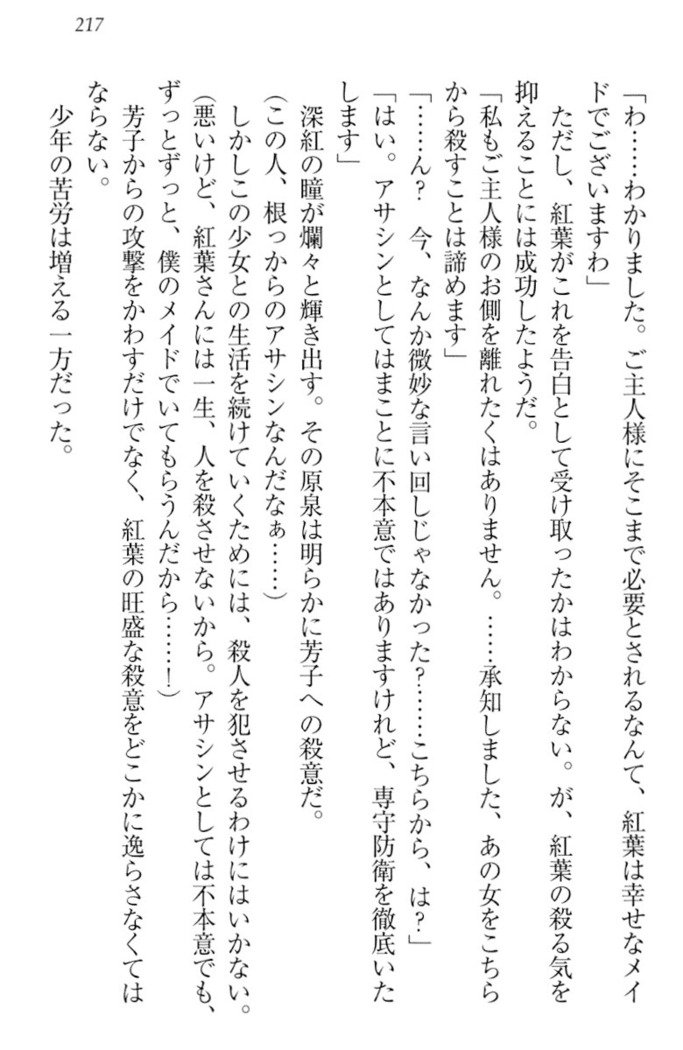 217
「わ……わかりました。ご主人様にそこまで必要とされるなんて、紅葉は幸せなメイ
ドでございますわ」
　ただし、紅葉がこれを告白として受け取ったかはわからない。が、紅葉の殺る気を
抑えることには成功したようだ。
「私もご主人様のお側を離れたくはありません。……承知しました、あの女をこちら
から殺すことは諦めます」
「……ん？　今、なんか微妙な言い回しじゃなかった？……こちらから、は？」
「はい。アサシンとしてはまことに不本意ではありますけれど、専守防衛を徹底いた
します」
　深紅の瞳が爛々と輝き出す。その原泉は明らかに芳子への殺意だ。
（この人、根っからのアサシンなんだなぁ……）
　しかしこの少女との生活を続けていくためには、殺人を犯させるわけにはいかない。
（悪いけど、紅葉さんには一生、人を殺させないから。アサシンとしては不本意でも、
ずっとずっと、僕のメイドでいてもらうんだから……！）
　芳子からの攻撃をかわすだけでなく、紅葉の旺盛な殺意をどこかに逸らさなくては
ならない。
　少年の苦労は増える一方だった。